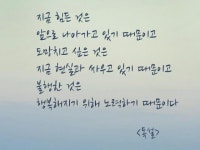 지금 힘든 것은
앞으로 나아가고 있기 때문이고
도망치고 싶은 것은
지금 현실과 싸우고 있기 때문이고
불행한 것은
행복해지기 위해 노력하기 때문이다
<독설>